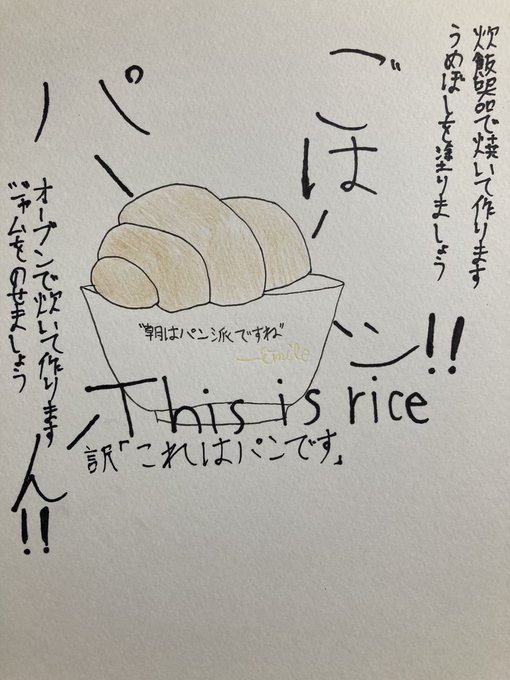 炊飯器で焼いて作ります
うめぼしを塗りましょう
ごはン!!
パん!!
オーブンで炊いて作ります
ジャムをのせましょう
“朝はパン派ですね”
—Emile
This is rice
訳「これはパンです」